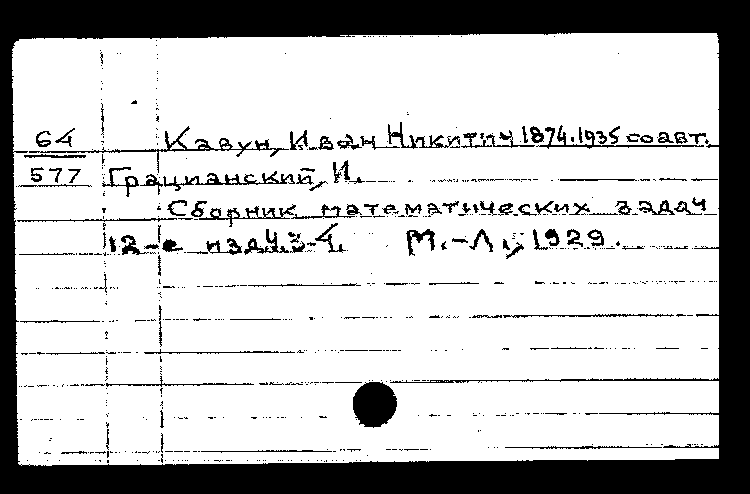 64
577
Кавун, Иван Никитич 1874-1935 соавт.
Грацианский, И.
Сборник математических задач
12-е изд. Ч.3-4. М.-Л., 1929.